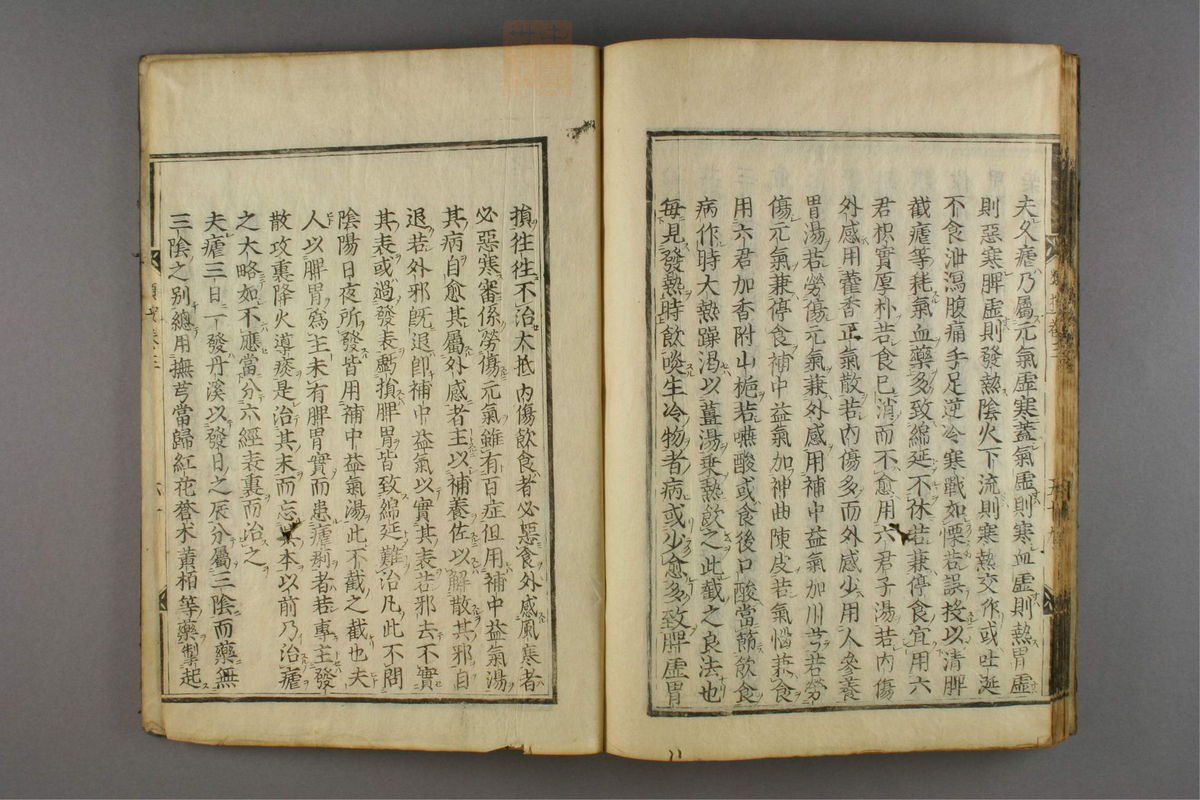 夫久瘧乃屬元氣虛寒蓋氣虛則寒血虛則熱胃虛
則惡寒脾虛則發熱陰火下流則寒熱交作或吐涎
不食泄瀉腹痛手足逆冷寒戰如慄若誤投以清脾
截瘧等耗氣血藥多致綿延不休若兼停食宜用六
君枳實厚朴若食已消而不愈用六君子湯若內傷
外感用藿香正氣散若內傷多而外感少用人參養
胃湯若勞傷元氣兼外感用補中益氣加川芎若勞
傷元氣兼停食補中益氣加神曲陳皮若氣惱兼食
用六君加香附山梔若嚥酸或食後口酸當節飲食
病作時大熱躁渴以薑湯乗熱飲之此截之良法也
每見發熱時飲啖生冷物者病或少愈多致脾虛胃
損往往不治大抵內傷飲食者必惡食外感風寒者
必惡寒審係勞傷元氣雖有百症但用補中益氣湯
其病自愈其屬外感者主以補養佐以解散其邪自
退若外邪既退即補中益氣以實其表若邪去不實
其表或過發表虧損脾胃皆致綿延難治凡此不問
陰陽日夜所發皆用補中益氣湯此不截之截也夫
人以脾胃爲主未有脾胃實而患瘧痢者若專主發
散攻裏降火導痰是治其末而忘其本以前乃治瘧
之大略如不應當分六經表裏而治之
夫瘧三日一發丹溪以發日之辰分屬三陰而藥無
三陰之別總用撫芎當歸紅花蒼朮黃柏等藥掣起
卷三
六一